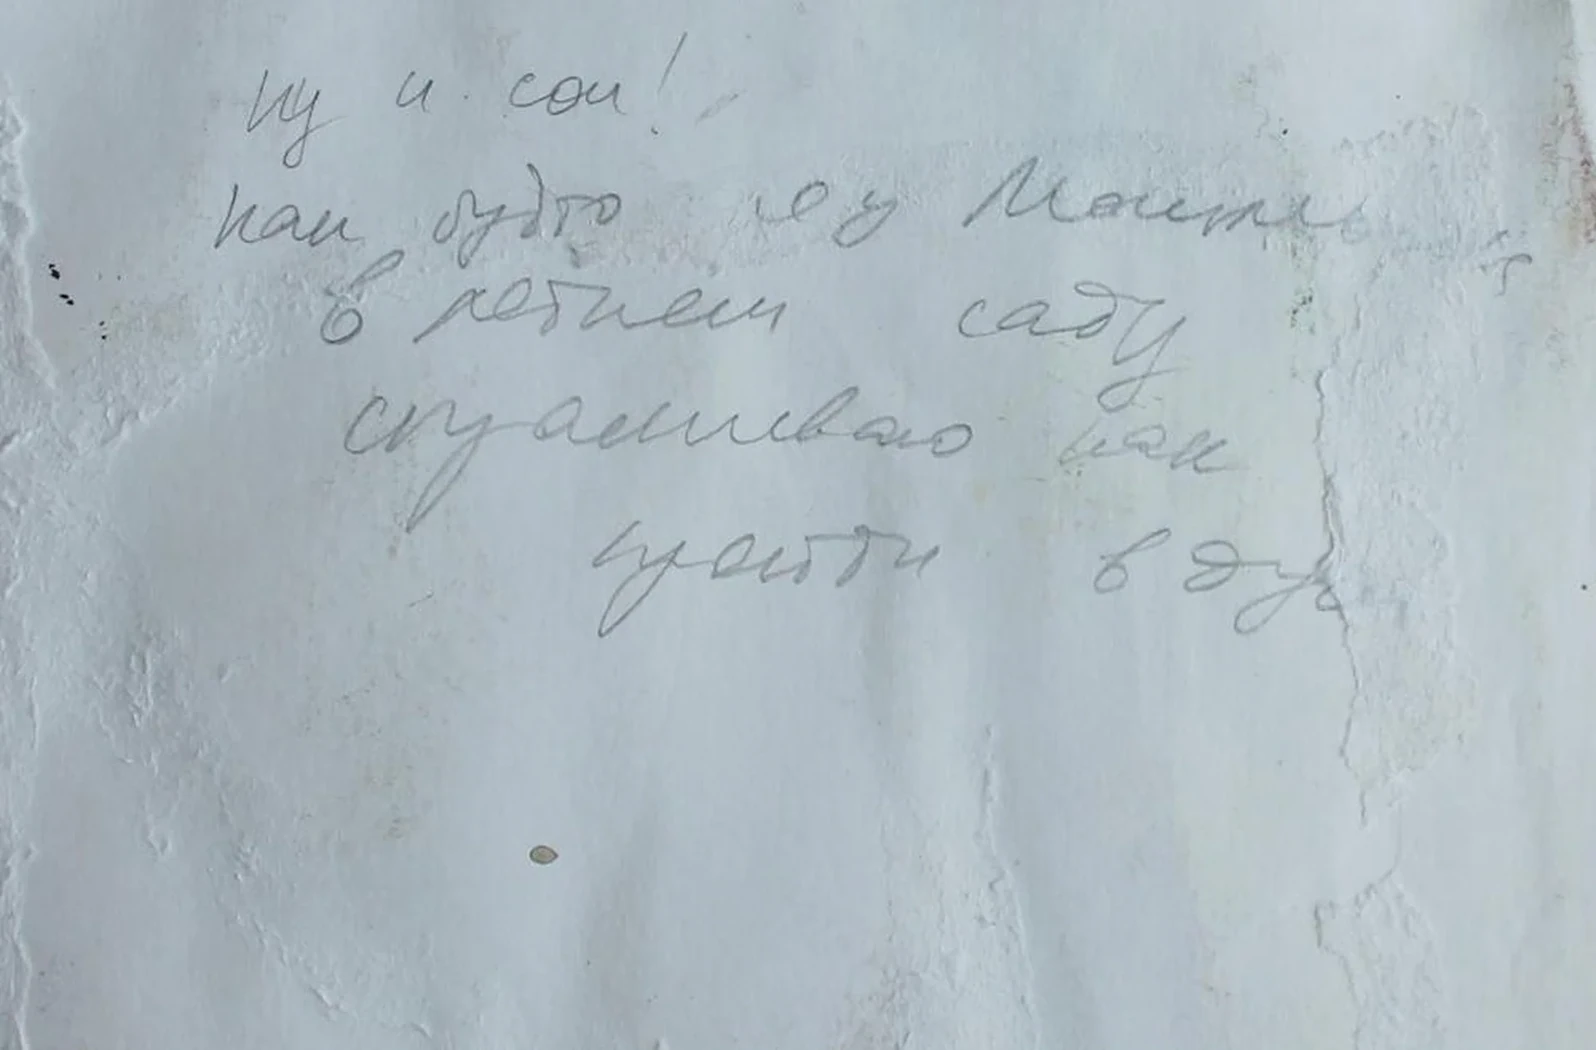 Ну и сон!
Как будто я у
в летнем саду
спрашиваю как
пройти в